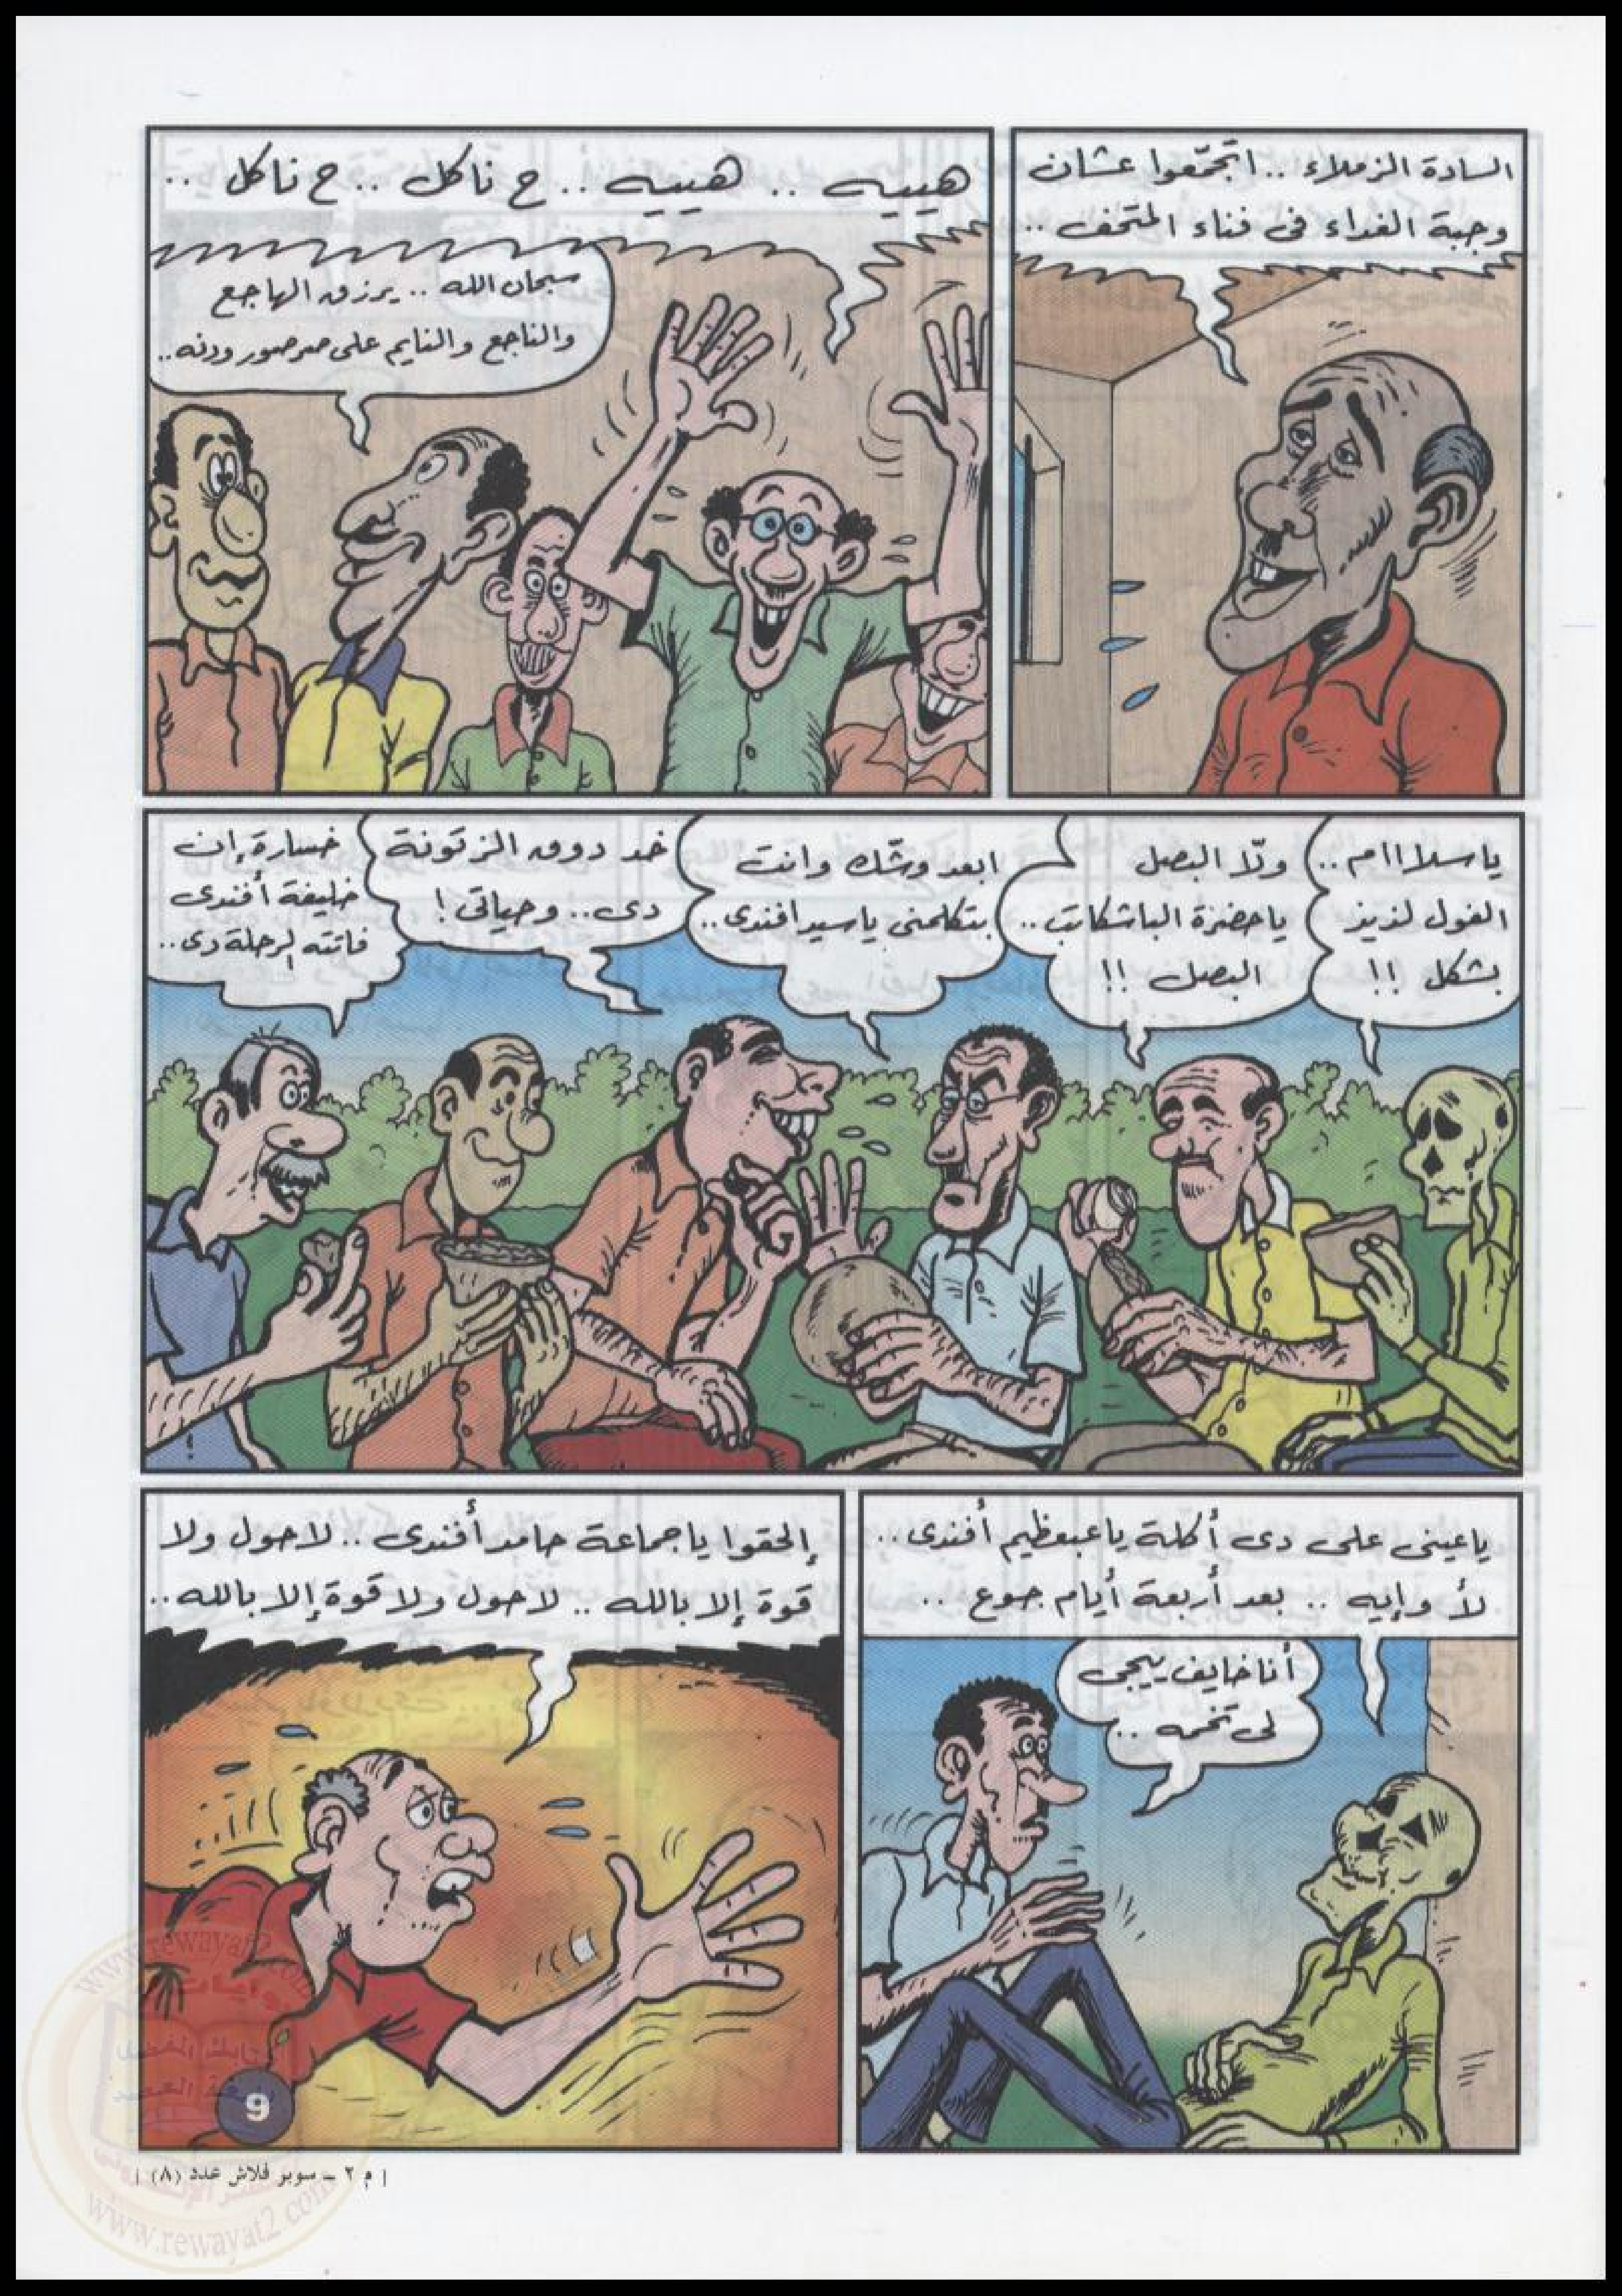 السادة الزملاء .. اتجمّعوا عشان
وجبة الغداء فى فناء المتحف ..
هييييه .. هييييه .. ح ناكل .. ح ناكل ..
سبحان الله .. يرزق الهاجع
والناجع والنايم على صرصور ودنه ..
ياسلاااام ..
الفول لذيذ
بشكل !!
ولّا البصل
ياحضرة الباشكاتب ..
البصل !!
ابعد وشّك وانت
بتكلمنى ياسيد افندى ..
خد دوق الزتونة
دى .. وحياتى !
خسارة إن
خليفة أفندى
فاتته الرحلة دى ..
ياعينى على دى أكلة ياعبعظيم أفندى ..
لأ وإيه .. بعد أربعة أيام جوع ..
أنا خايف ييجى
لى تخمه ..
إلحقوا ياجماعة حامد أفندى .. لاحول ولا
قوة إلا بالله .. لاحول ولا قوة إلا بالله ..
9
| م ٢ – سوبر فلاش عدد (٨) |
www.rewayat2.com
روايات
www.rewayat2.com